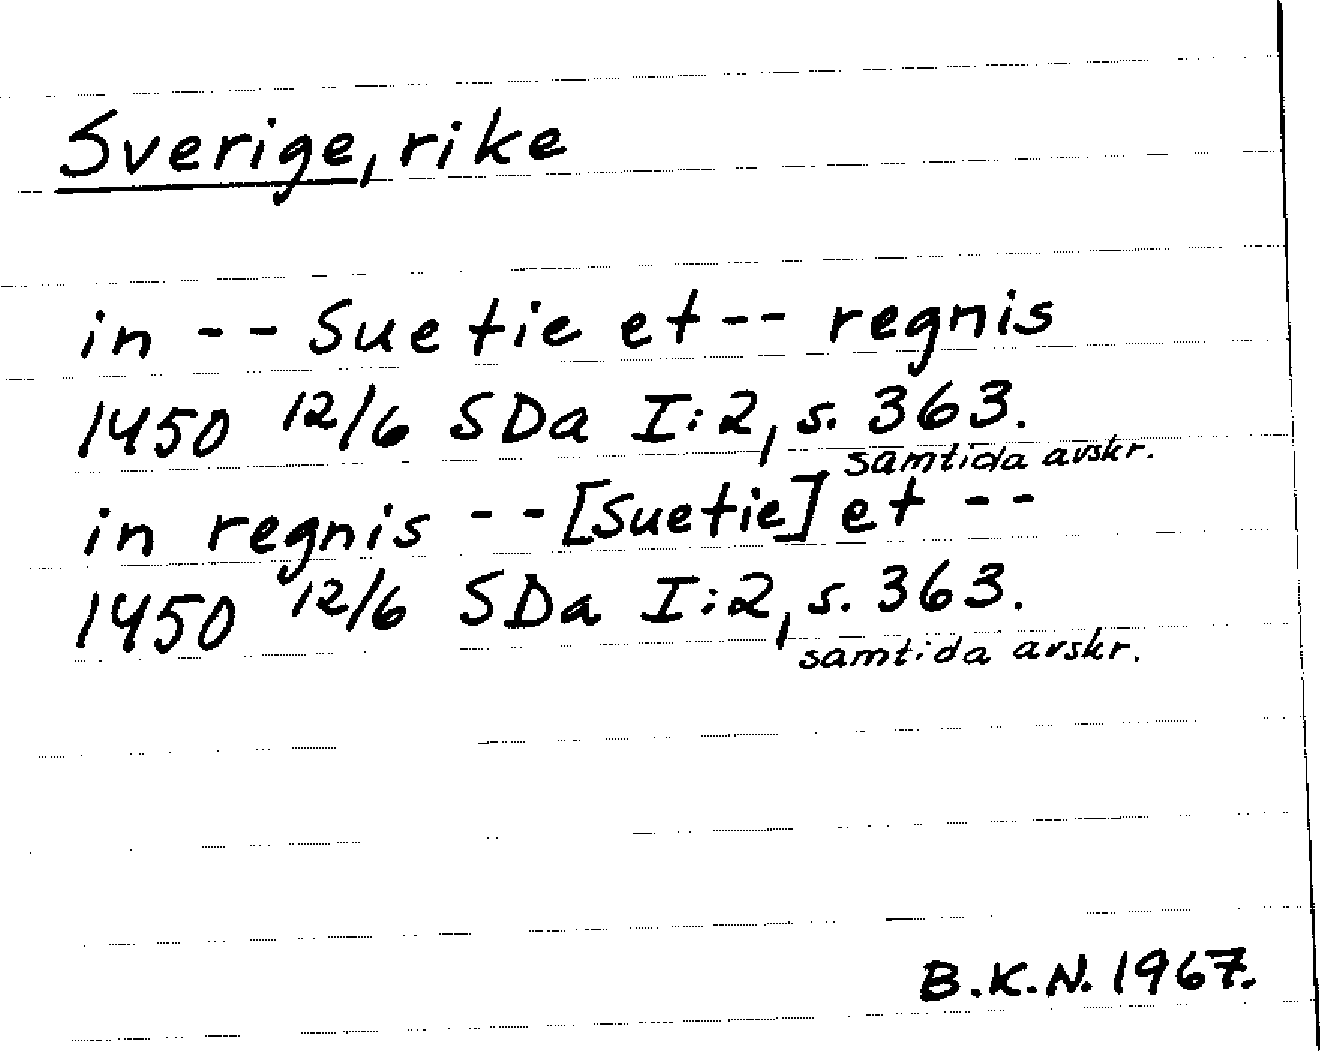 Sverige, rike
in - - Suetie et - - regnis
1450 12/6 SDa I:2, s. 363.
samtida avskr.
in regnis - - [Suetie] et - -
1450 12/6 SDa I:2, s. 363.
samtida avskr.
B.K.N. 1967.